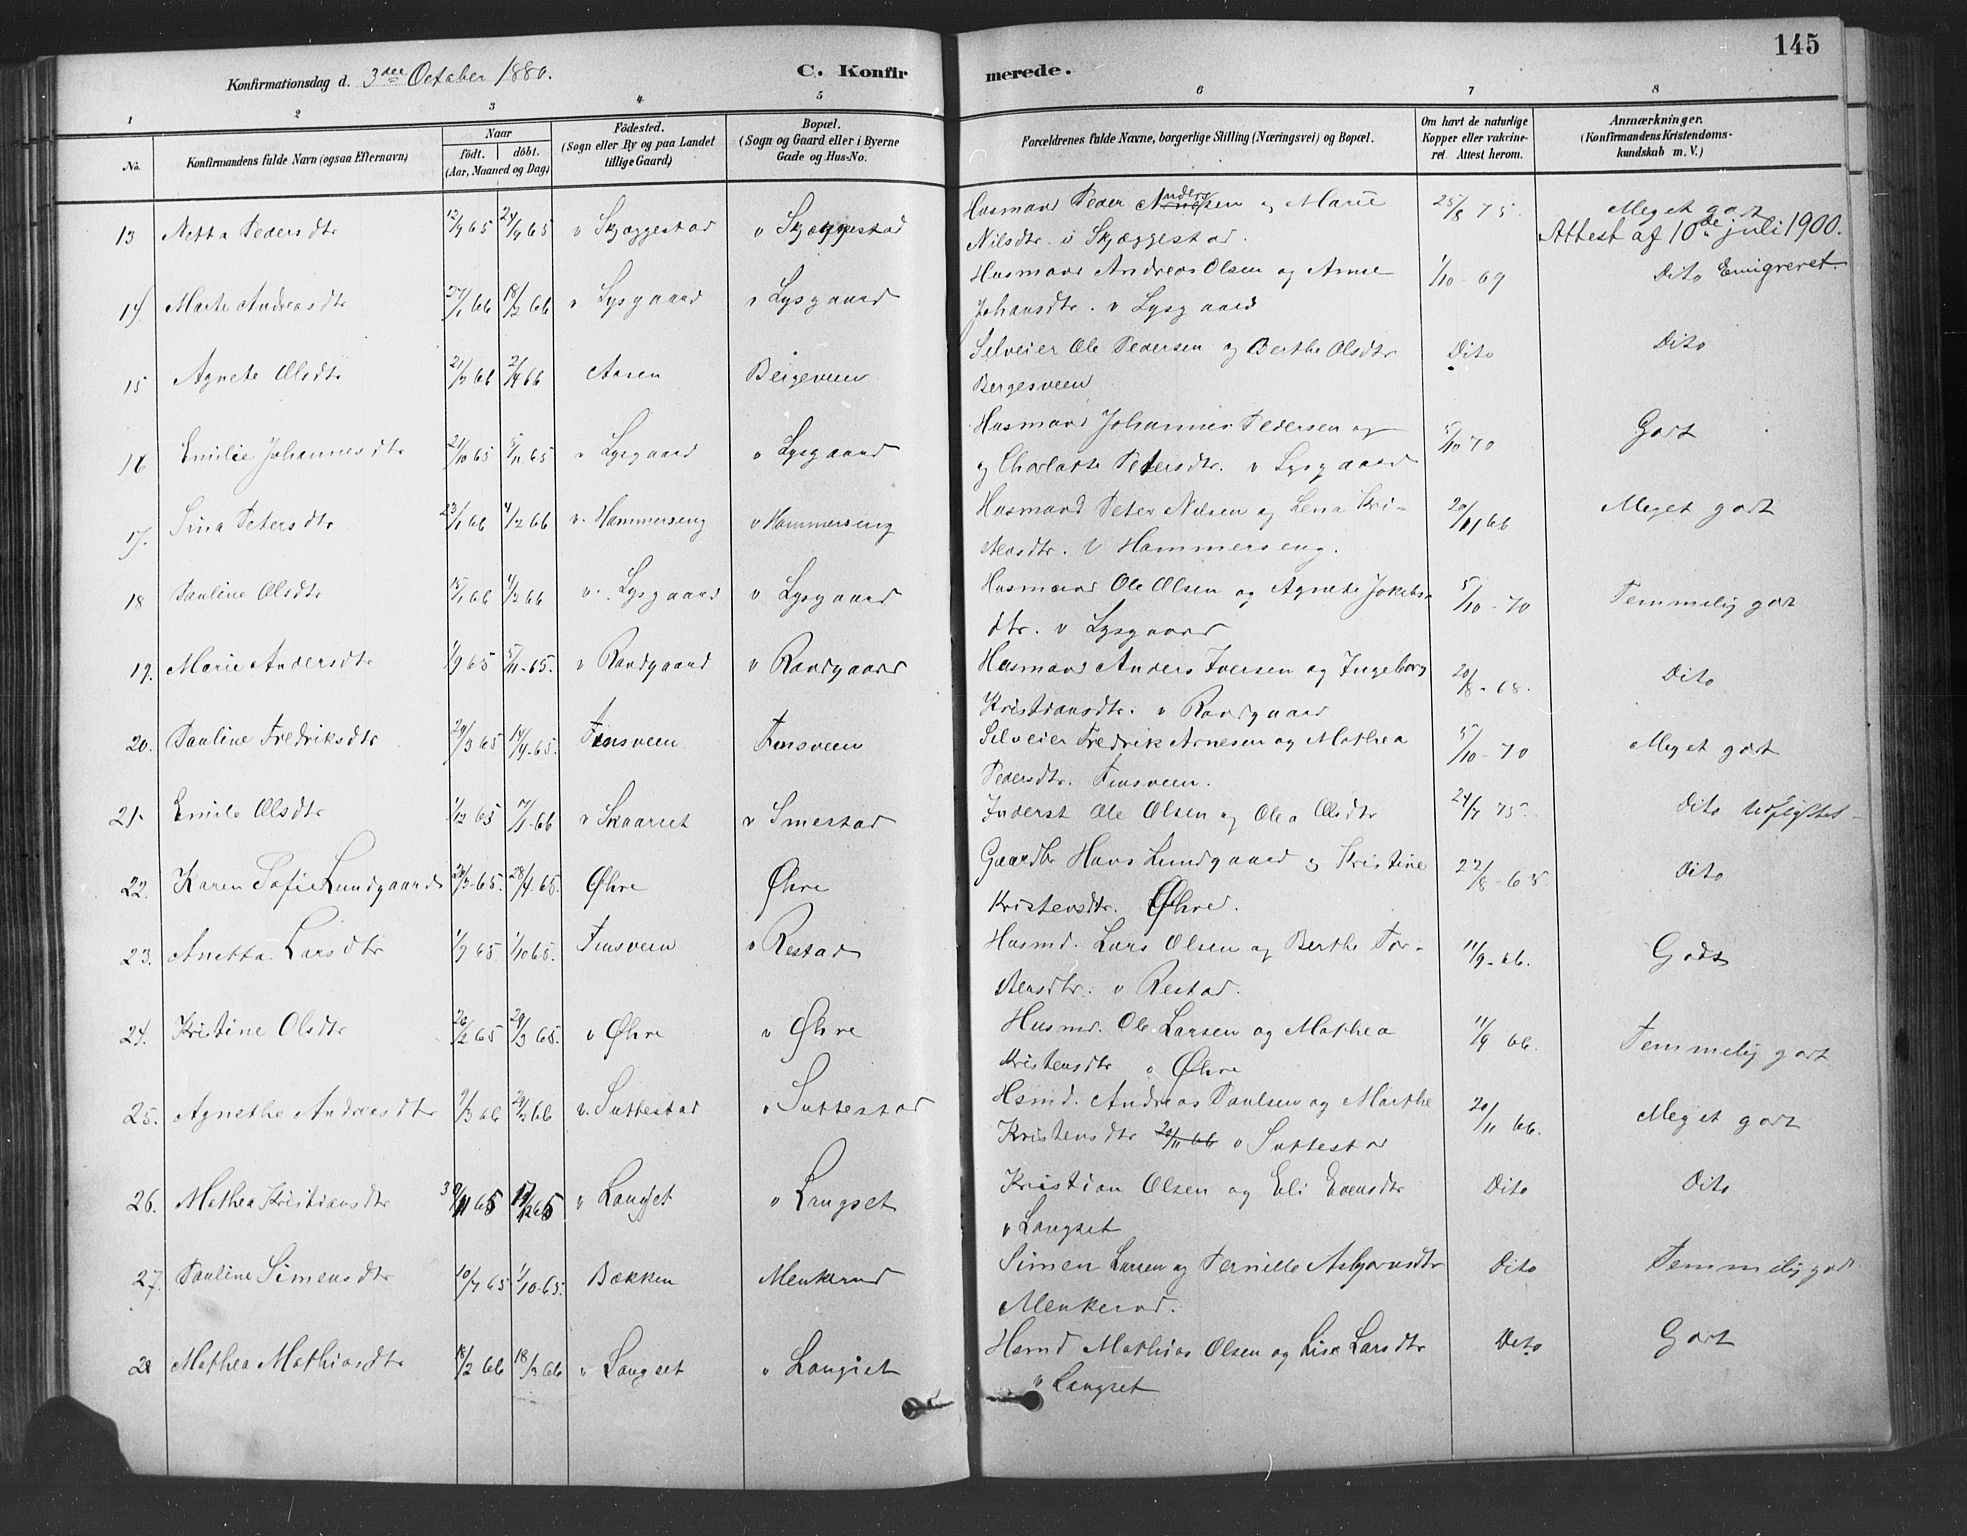 145
Konfirmationsdag d. 3die October 1880.
C. Konfirmerede.
1 2 3 4 5 6 7 8
No.
Konfirmandens fulde Navn (ogsaa Efternavn)
Naar
födt. | döbt.
(Aar, Maaned og Dag)
Födested.
(Sogn eller By og paa Landet
tillige Gaard)
Bopæl.
(Sogn og Gaard eller i Byerne
Gade og Hus-No.
Forældrenes fulde Navne, borgerlige Stilling (Næringsvei) og Bopæl.
Om havt de naturlige
Kopper eller vakcine-
ret Attest herom.
Anmærkninger.
(Konfirmandens Kristendoms-
kundskab m. V.)
13 Netta Pedersdtr 12/9 65 24/9 65 v Skjæggestad v Skjæggestad Husmand Peder Andersen og Marie 25/8 75. Meget godt
Nilsdtr. v Skjæggestad. Attest af 10de juli 1900.
14 Marte Andreasdtr 27/1 66 18/2 66 v Lysgaard v Lysgaard Husmand Andreas Olsen og Anne 1/10 - 69 Dito Emigreret.
Johansdtr. v Lysgaard
15 Agnete Olsdtr 21/3 66 2/4 66 Aaren Bergeveen Selveier Ole Pedersen og Berthe Olsdtr Dito Dito
Bergesveen
16 Emilie Johannesdtr 21/10 65 5/11 65 v Lysgaard v Lysgaard Husmand Johannes Pedersen og 5/10 70 Godt
og Charlotte Petersdtr. v Lysgaard
17. Sina Petersdtr 23/1 66 4/2 66 v. Hammerseng v Hammerseng Husmand Peter Nilsen og Lena Kri- 20/11 66 Meget godt
stensdtr. v Hammerseng.
18 Pauline Olsdtr 15/1 66 4/2 66 v. Lysgaard v Lysgaard Husmand Ole Olsen og Agnete Jakobs- 5/10 - 70 Temmelig godt
dtr. v Lysgaard
19. Marie Andersdtr 1/9 65 5/11 - 65. v Randgaard v Randgaard Husmand Anders Iversen og Ingeborg 20/8 - 68. Dito
Kristiansdtr. v Randgaard
20. Pauline Fredriksdtr 29/3 65 14/4 - 65. Finsveen Finsveen Selveier Fredrik Arnesen og Mathea 5/10 - 70 Meget godt
Pedersdtr. Finsveen.
21. Emile Olsdtr 1/12 65 7/1 - 66 v Skaaret v Smestad Inderst Ole Olsen og Olea Olsdtr 24/7 75. Dito Udflyttet
22. Karen Sofie Lundgaard 24/3 - 65. 28/4 - 65. Øhre Øhre Gaardbr Hans Lundgaard og Kristine 22/8 - 65. Dito
Kristensdtr. Øhre.
23. Anetta Larsdtr 1/9 65. 1/10 65. Finsveen v Restad Husmd. Lars Olsen og Berthe Tor- 11/9 - 66. Godt
stensdtr. v Restad.
24. Kristine Olsdtr 26/2 65 29/3 65. v Øhre v Øhre Husmd. Ole Larsen og Mathea 11/9 66. Temmelig godt
Kristensdtr v Øhre
25. Agnethe Andreasdtr 9/3 66 29/3 66 v. Suttestad v Suttestad Hsmd. Andreas Paulsen og Marthe 20/11 66. Meget godt
Kristensdtr 20/11 66 v Suttestad
26. Mathea Kristiansdtr 30/11 65 17/12 65 v Langset v Langset Kristian Olsen og Eli Evensdtr Dito Dito
v Langset
27. Pauline Simensdtr 10/7 65 1/10 - 65. Bækken Menkerud Simen Larsen og Pernille Asbjørnsdtr Dito Temmelig godt
Menkerud.
28 Mathea Mathiasdtr 18/2 66 18/3 66 v Langset v Langset Hsmd Mathias Olsen og Lisa Larsdtr Dito Godt
v Langset